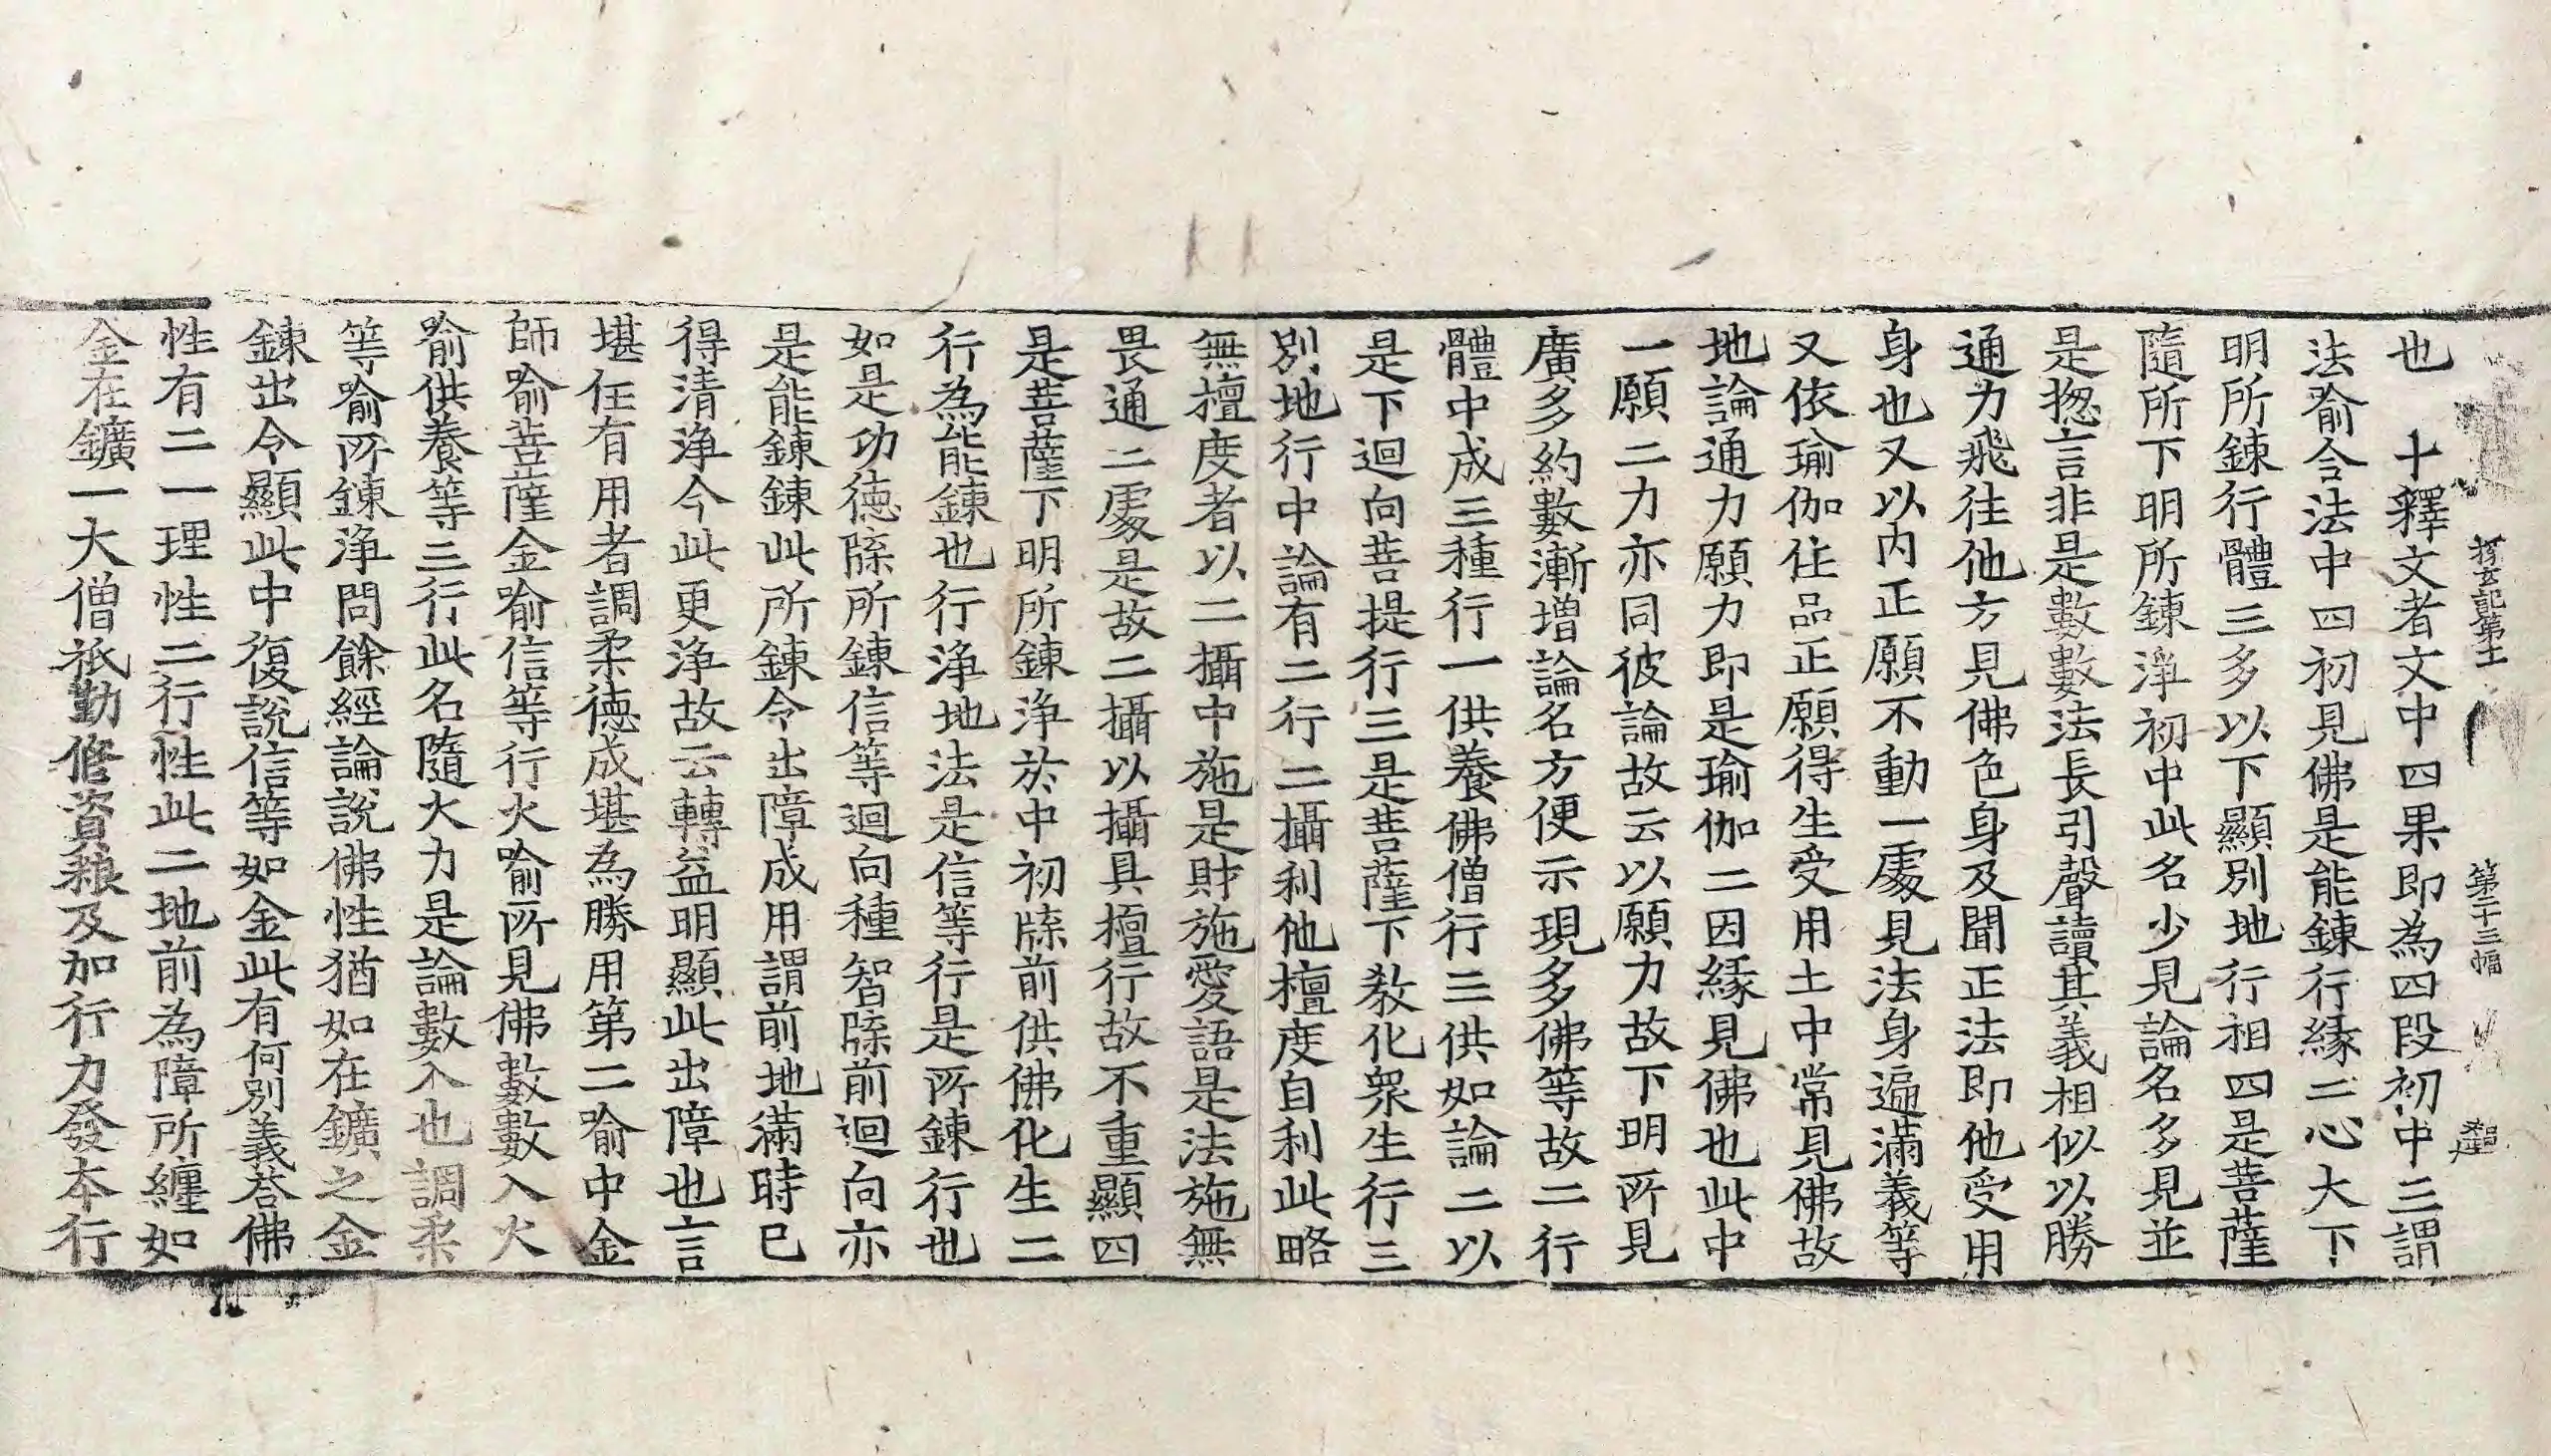 探玄記第十 第二十三幅
也 十釋文者文中四果即為四段初中三謂
法喻合法中四初見佛是能鍊行緣二心大下
明所鍊行體三多以下顯別地行相四是菩薩
隨所下明所鍊淨初中此名少見論名多見並
是揔言非是數數法長引聲讀其義相似以勝
通力飛往他方見佛色身及聞正法即他受用
身也又以內正願不動一處見法身遍滿義等
又依瑜伽住品正願得生受用土中常見佛故
地論通力願力即是瑜伽二因緣見佛也此中
一願二力亦同彼論故云以願力故下明所見
廣多約數漸增論名方便示現多佛等故二行
體中成三種行一供養佛僧行三供如論二以
是下迴向菩提行三是菩薩下教化眾生行三
別地行中論有二行二攝利他檀度自利此略
無檀度者以二攝中施是財施愛語是法施無
畏通二處是故二攝以攝具檀行故不重顯四
是菩薩下明所鍊淨於中初牒前供佛化生二
行為能鍊也行淨地法是信等行是所鍊行也
如是功德牒所鍊信等迴向種智牒前迴向亦
是能鍊鍊此所鍊令出障成用謂前地滿時已
得清淨今此更淨故云轉益明顯此出障也言
堪任有用者調柔德成堪為勝用第二喻中金
師喻菩薩金喻信等行火喻所見佛數數入火
喻供養等三行此名隨大力是論數入也調柔
等喻所鍊淨問餘經論說佛性猶如在鑛之金
鍊出今顯此中復說信等如金此有何別義荅佛
性有二一理性二行性此二地前為障所纏如
金在鑛一大僧祇勤修資粮及加行力發本行